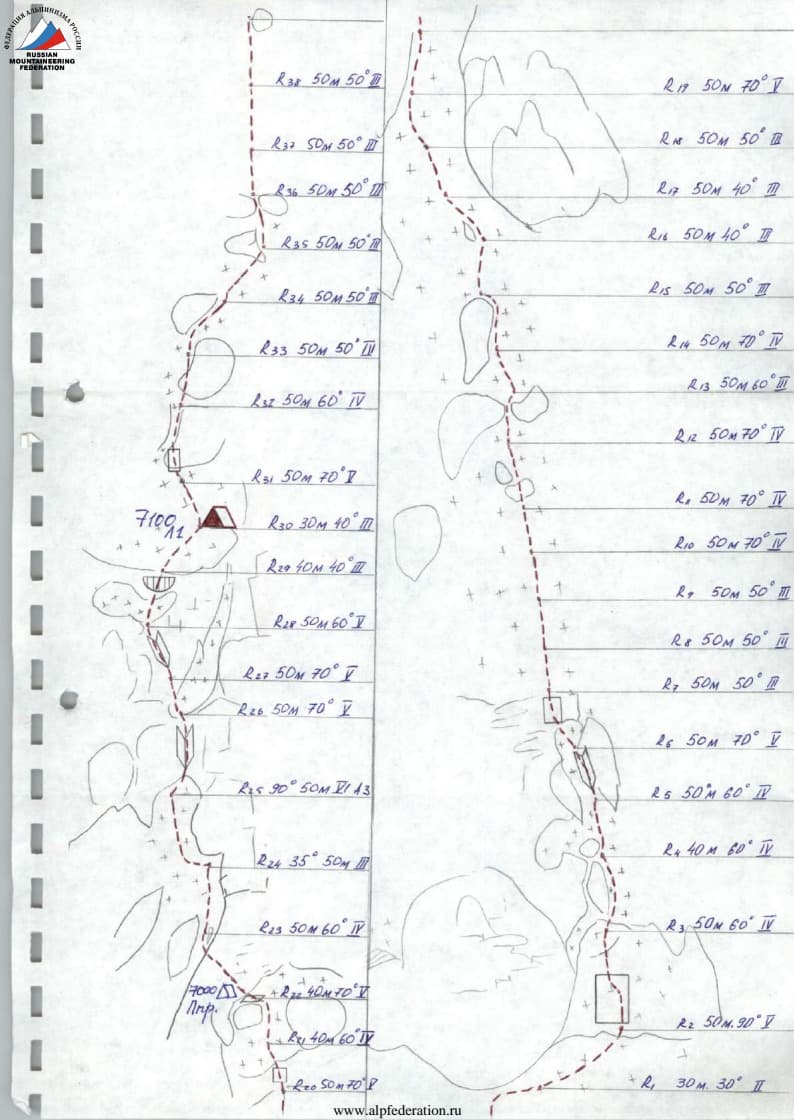 ФЕДЕРАЦИЯ АЛЬПИНИЗМА РОССИИ
RUSSIAN
MOUNTAINEERING
FEDERATION
R38 50м 50° III
R37 50м 50° III
R36 50м 50° III
R35 50м 50° III
R34 50м 50° III
R33 50м 50° IV
R32 50м 60° IV
R31 50м 70° V
7100
Л1
R30 30м 40° III
R29 40м 40° III
R28 50м 60° V
R27 50м 70° V
R26 50м 70° V
R25 90° 50м VI А3
R24 35° 50м III
R23 50м 60° IV
7000
Лпр.
R22 40м 70° V
R21 40м 60° IV
R20 50м 70° V
R19 50м 70° V
R18 50м 50° III
R17 50м 40° III
R16 50м 40° III
R15 50м 50° III
R14 50м 70° IV
R13 50м 60° III
R12 50м 70° IV
R11 50м 70° IV
R10 50м 70° IV
R9 50м 50° III
R8 50м 50° III
R7 50м 50° III
R6 50м 70° V
R5 50м 60° IV
R4 40м 60° IV
R3 50м 60° IV
R2 50м. 90° V
R1 30м. 30° II
www.alpfederation.ru